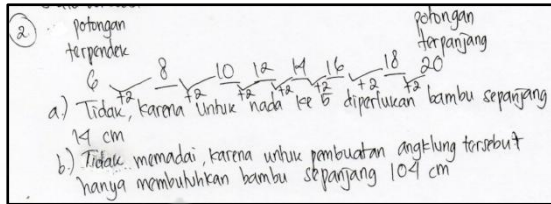 2. potongan terpendek
potongan terpanjang
6 8 10 12 14 16 18 20
+2 +2 +2 +2 +2 +2 +2
a.) Tidak, karena untuk nada ke 5 diperlukan bambu sepanjang
14 cm
b.) Tidak memadai, karena untuk pembuatan angklung tersebut
hanya membutuhkan bambu sepanjang 104 cm